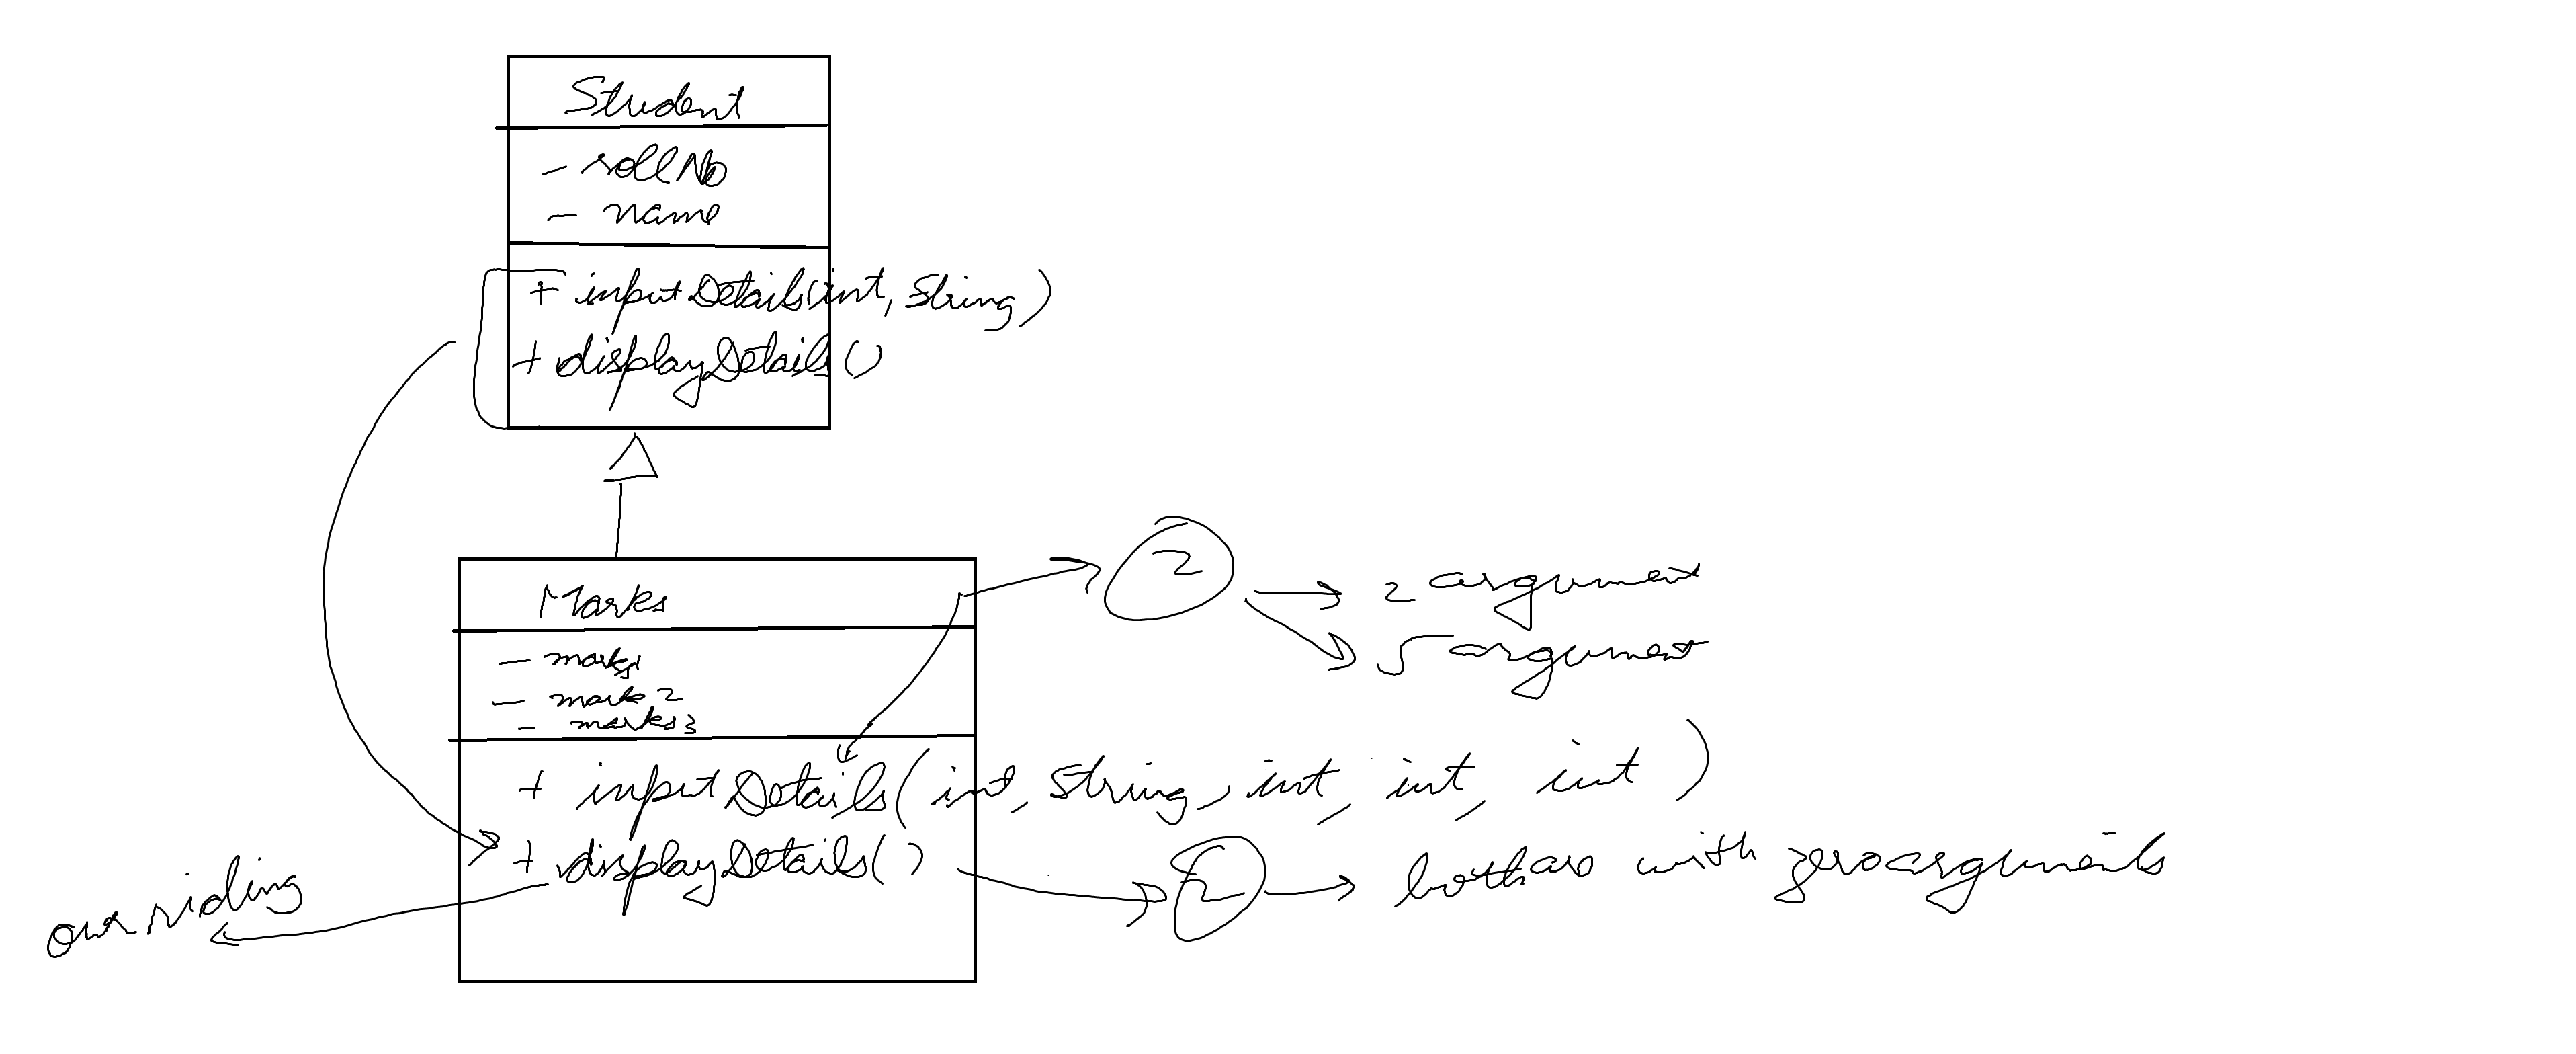 Student
- rollNo
- name
+ inputDetails(int, String)
+ displayDetails()
Marks
- marks1
- marks2
- marks3
+ inputDetails(int, String, int, int, int)
+ displayDetails()
2
2 argument
5 argument
2
both are with zero arguments
overriding